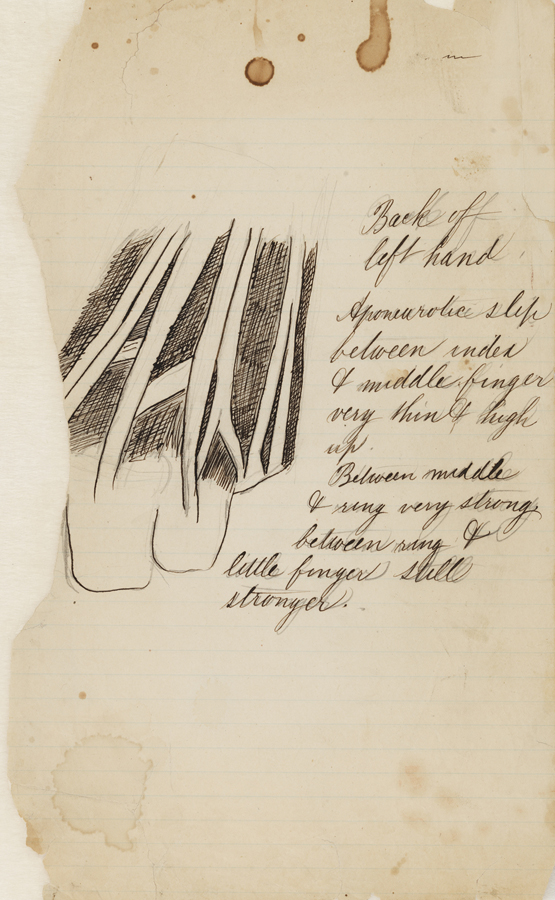 Back of
left hand
Aponeurotic slip
between index
& middle finger
very thin & high
up.
Between middle
& ring very strong,
between ring &
little finger still
stronger.